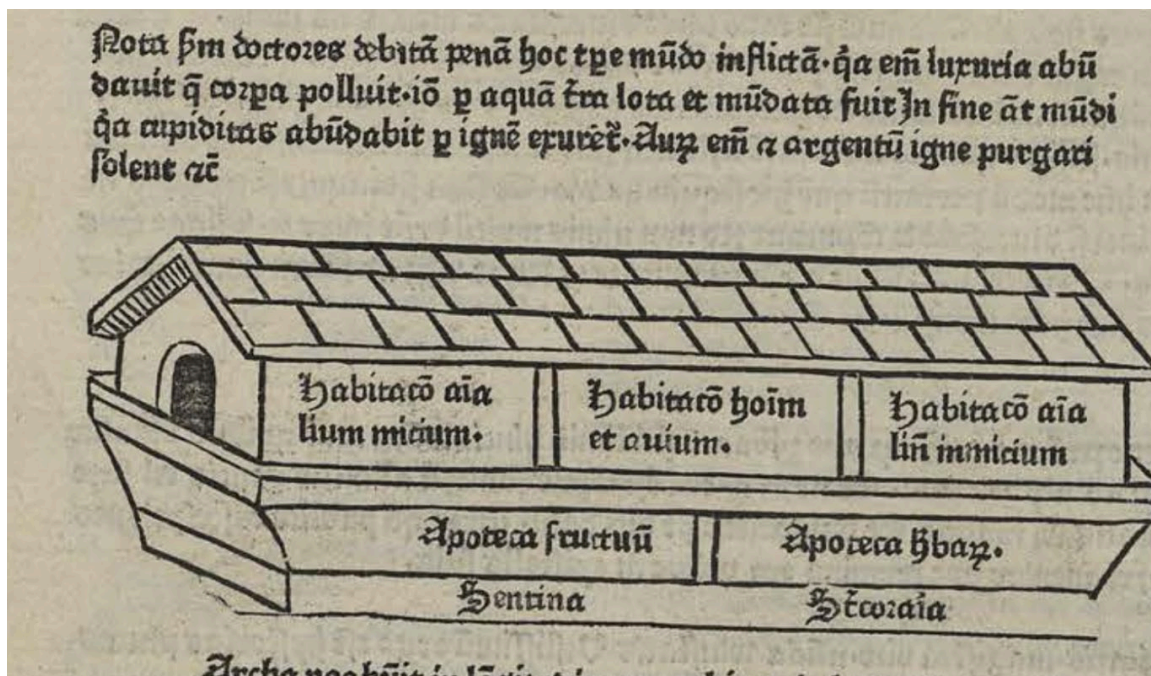 Nota ẜm doctores debitā penā hoc tꝑe mūdo inflictā·q̊a em̄ luxuria abū
davit q̄ corꝑa polluit·iō ꝑ aquā t̄ra lota et mūdata fuit In fine āt mūdi
q̊a cupiditas abūdabit ꝑ ignē exurēt᷑·Auꝝ em̄ ⁊ argentū igne purgari
solent ⁊c̄
Habitacō aīa
lium miciumꝰ·
Habitacō hoīm
et avium·
Habitacō aīa
liū inmicium
Apoteca fructuū
Apoteca h̄baꝝ·
Sentina
St̄coraīa